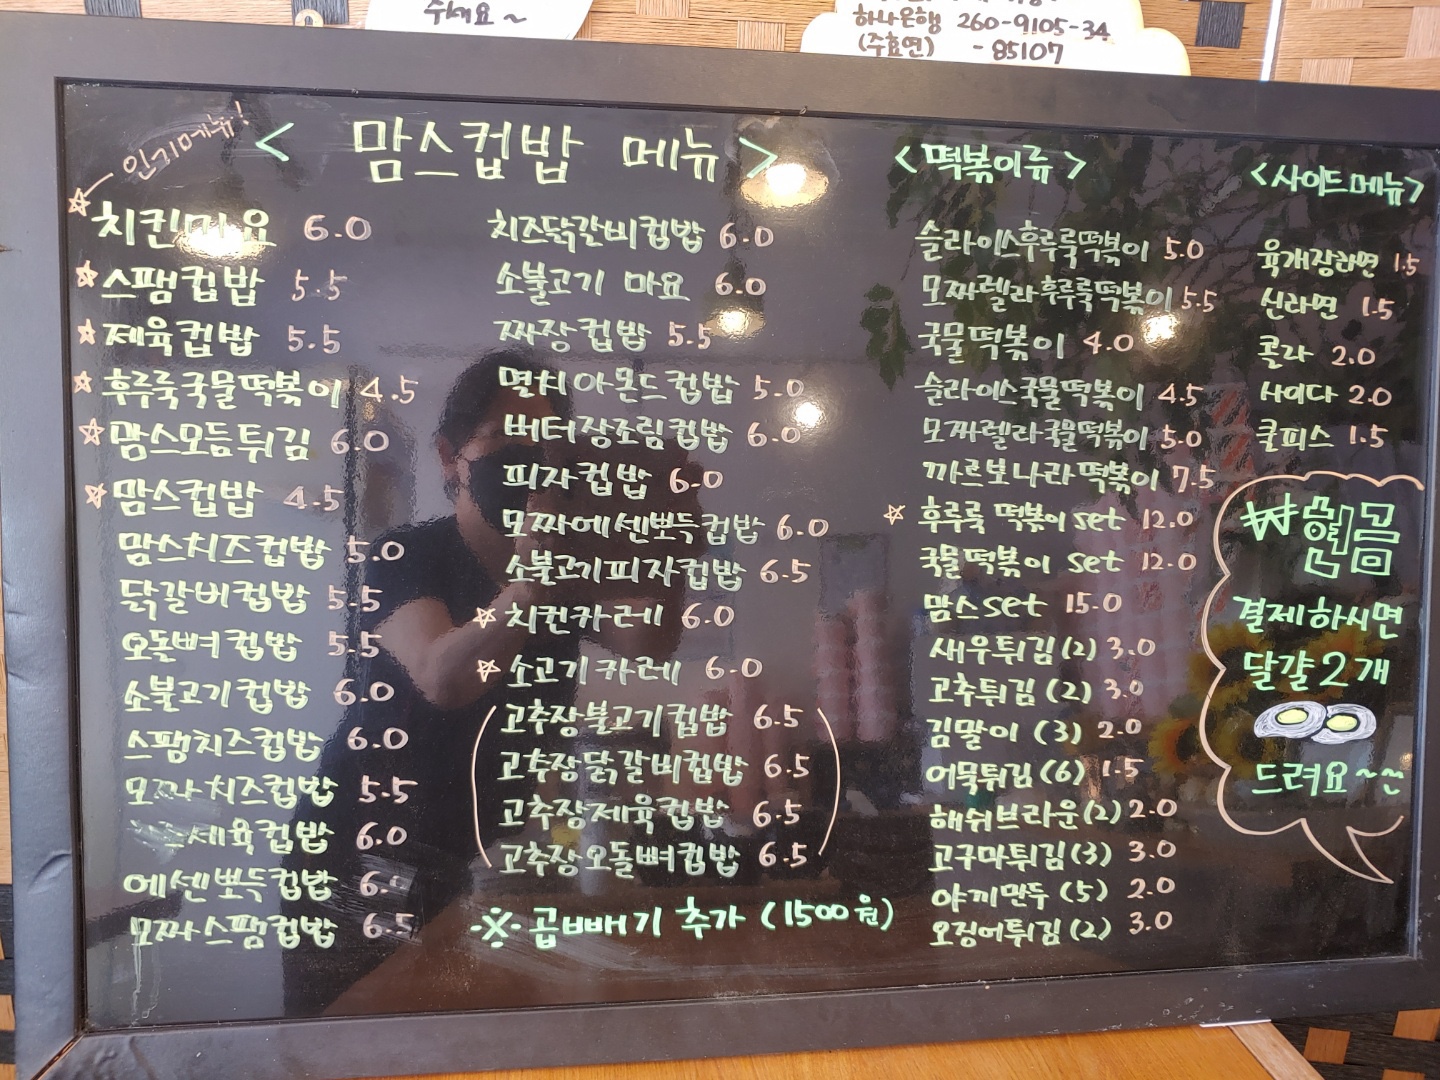 주세요~
하나은행 260-9105-34
(주효연) -85107
인기메뉴!
< 맘스컵밥 메뉴 >
☆ 치킨마요 6.0
☆ 스팸컵밥 5.5
☆ 제육컵밥 5.5
☆ 후루룩국물떡볶이 4.5
☆ 맘스모듬튀김 6.0
☆ 맘스컵밥 4.5
맘스치즈컵밥 5.0
닭갈비컵밥 5.5
오돌뼈컵밥 5.5
소불고기컵밥 6.0
스팸치즈컵밥 6.0
모짜치즈컵밥 5.5
제육컵밥 6.0
에센뽀득컵밥 6.
모짜스팸컵밥 6.5
치즈닭갈비컵밥 6.0
소불고기 마요 6.0
짜장컵밥 5.5
멸치아몬드컵밥 5.0
버터장조림컵밥 6.0
피자컵밥 6.0
모짜에센뽀득컵밥 6.0
소불고기피자컵밥 6.5
☆ 치킨카레 6.0
☆ 소고기카레 6.0
고추장불고기컵밥 6.5
고추장닭갈비컵밥 6.5
고추장제육컵밥 6.5
고추장오돌뼈컵밥 6.5
※ 곱빼기 추가 (1500원)
<떡볶이류>
슬라이스후루룩떡볶이 5.0
모짜렐라후루룩떡볶이 5.5
국물떡볶이 4.0
슬라이스국물떡볶이 4.5
모짜렐라국물떡볶이 5.0
까르보나라떡볶이 7.5
☆ 후루룩 떡볶이 set 12.0
국물떡볶이 set 12.0
맘스set 15.0
새우튀김(2) 3.0
고추튀김(2) 3.0
김말이 (3) 2.0
어묵튀김(6) 1.5
해쉬브라운(2) 2.0
고구마튀김(3) 3.0
야끼만두 (5) 2.0
오징어튀김(2) 3.0
<사이드메뉴>
육개장라면 1.5
신라면 1.5
콜라 2.0
사이다 2.0
쿨피스 1.5
₩현금
결제하시면
달걀2개
드려요~~